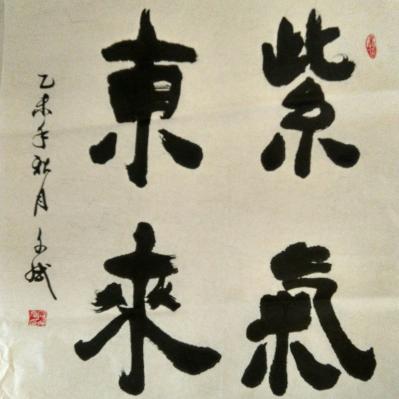 紫氣
東來
乙未年秋月文斌